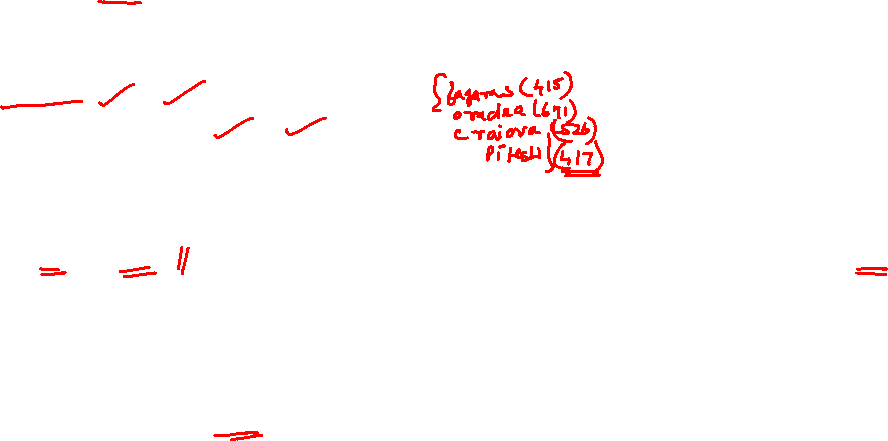 {Fagaras (415)
oradea (671)
craiova (526)
Pitesti (417)}